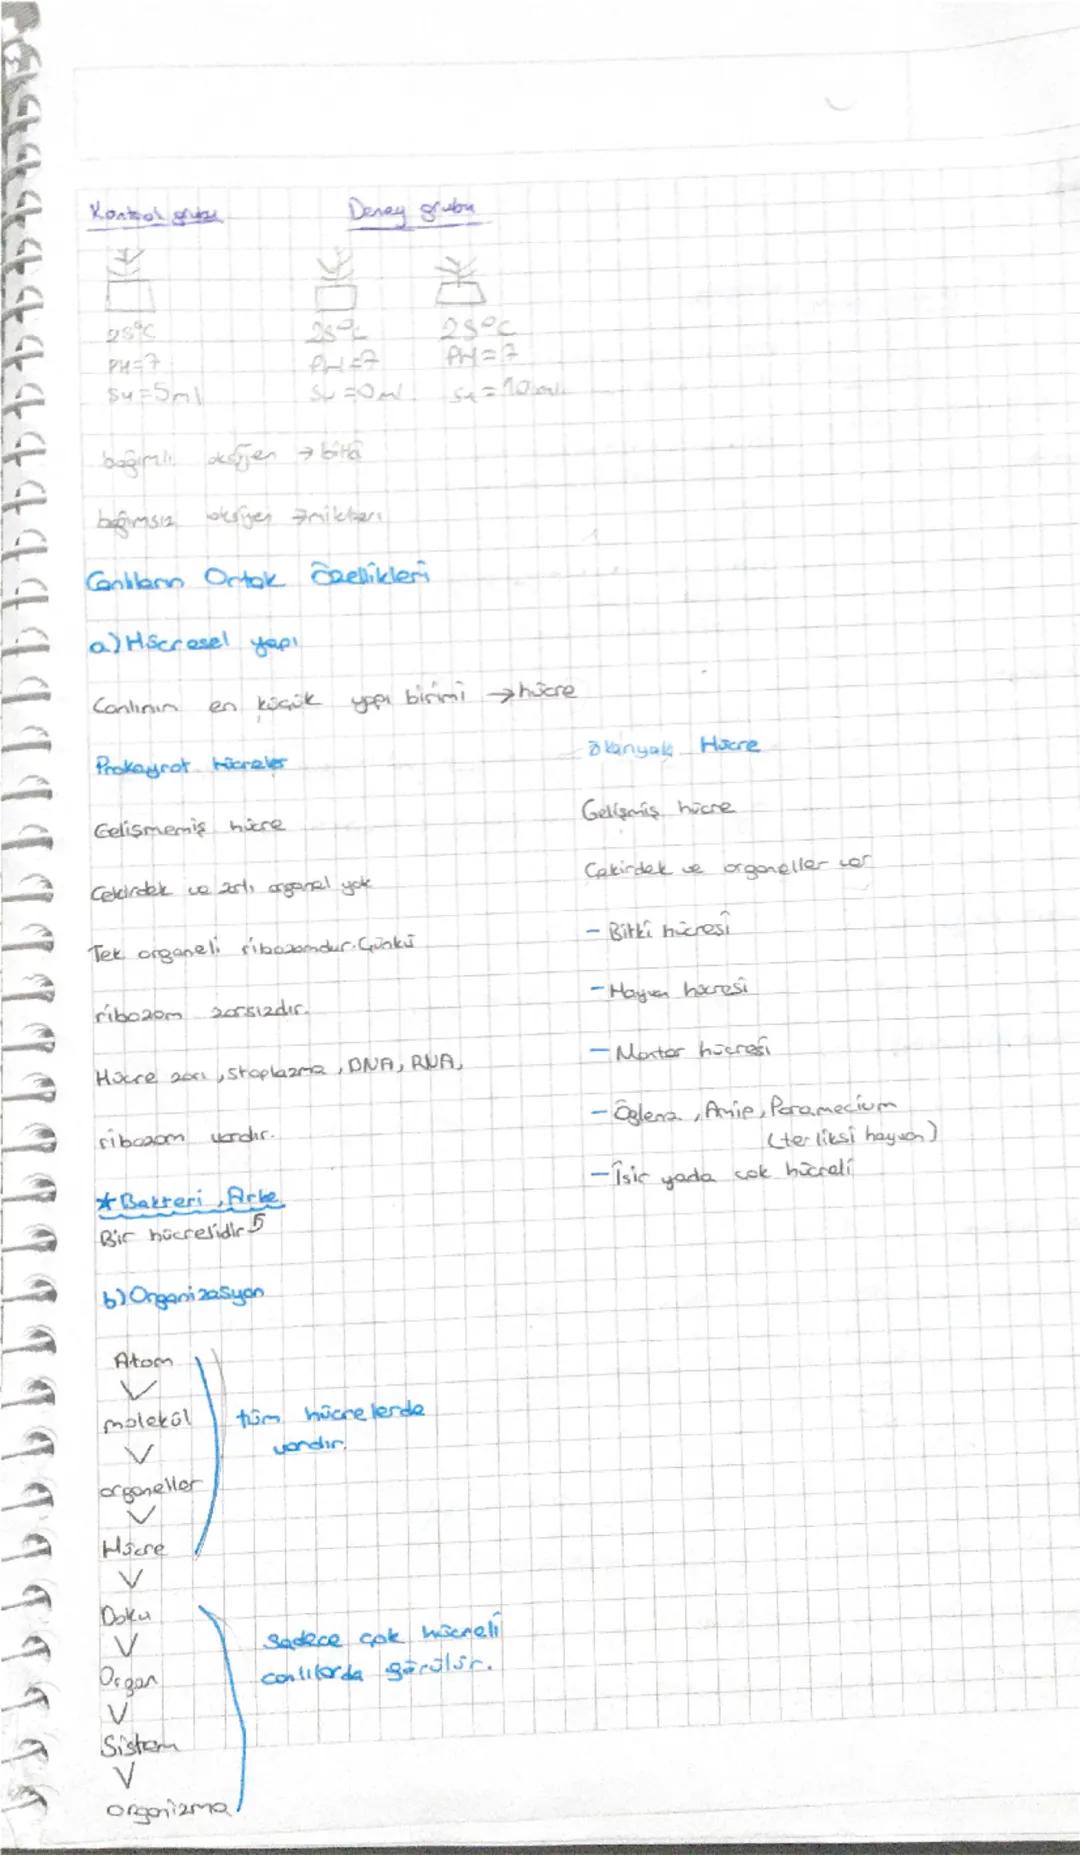 Kontrol grubu
Deney grubu
25°C
PH=7
Su=5ml
25°C
PH=7
Su=0ml
25°C
PH=7
Su=10ml
bağımlı oksijen → bitki
bağımsız oksijen → miktarı
Canlıların Ortak Özellikleri
a) Hücresel yapı
Canlının en küçük yapı birimi → hücre
Prokayrot hücreler
Gelişmemiş hücre
Çekirdek ve zarlı organel yok
Tek organeli ribozomdur. Çünkü
ribozom zarsızdır.
Hücre zarı, sitoplazma, DNA, RNA,
ribozom vardır.
* Bakteri, Arke
Bir hücrelidir
Ökaryak Hücre
Gelişmiş hücre
Çekirdek ve organeller var
- Bitki hücresi
- Hayvan hücresi
- Mantar hücresi
- Öglena, Amip, Paramecium
(terliksi hayvan)
- Bir yada çok hücreli
b) Organizasyon
Atom
molekül
organeller
Hücre
tüm hücrelerde
vardır.
Doku
Organ
Sistem
organizma
sadece çok hücreli
canlılarda görülür.